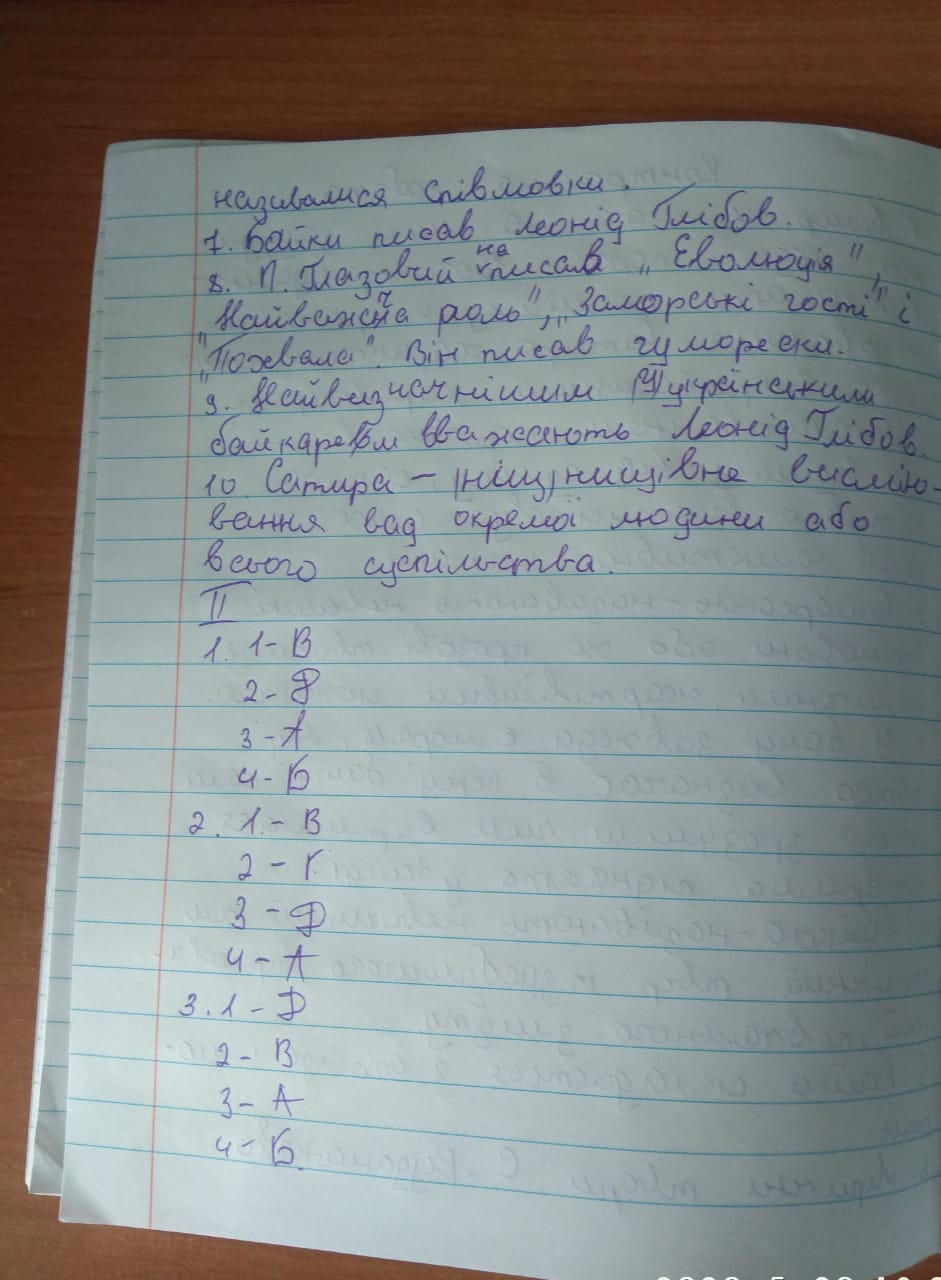 називалися співмовки.
7. Байки писав Леонід Глібов.
8. П. Глазовий написав „Еволюція",
„Найважча роль", „Заморські гості" і
„Похвала". Він писав гуморески.
9. Найвизначнішим (Ч) українським
байкарем вважають Леонід Глібов.
10. Сатира – (ніщ) нищівне висмію-
вання вад окремої людини або
всього суспільства.
II
1. 1- В
2- Д
3- А
4- Б
2. 1. - В
2 - Г
3 - Д
4 - А
3. 1 - Д
2- В
3- А
4- Б.